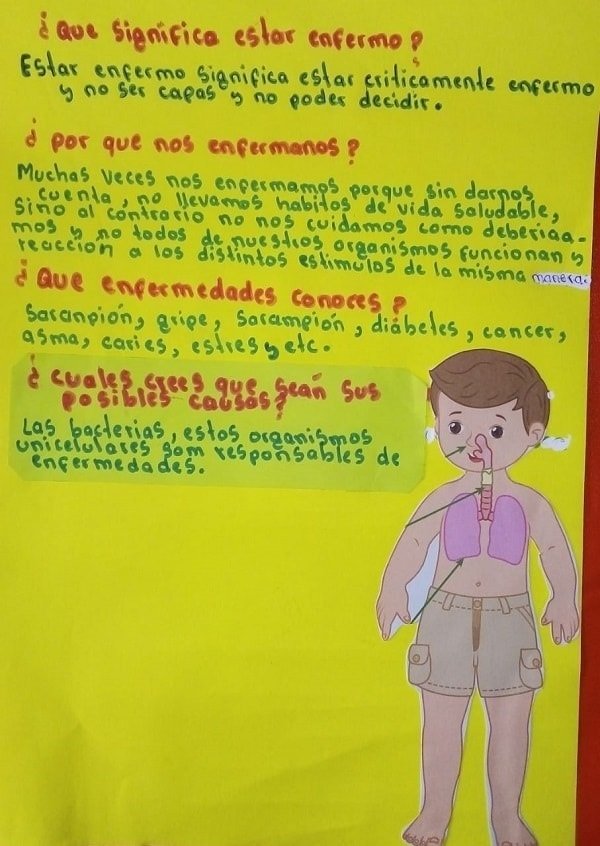 ¿Que significa estar enfermo?
Estar enfermo significa estar criticamente enfermo
y no ser capas y no poder decidir.
¿por que nos enfermanos?
Muchas veces nos enfermamos porque sin darnos
cuenta, no llevamos habitos de vida saludable,
sino al contrario no nos cuidamos como deberiaa-
mos y no todos de nuestros organismos funcionan y
reacción a los distintos estimulos de la misma manera.
¿Que enfermedades conoces?
Saranpión, gripe, Sarampión, diábetes, cancer,
asma, caries, estres y etc.
¿cuales crees que sean sus
posibles causas?
Las bacterias, estos organismos
unicelulares som responsables de
enfermedades.